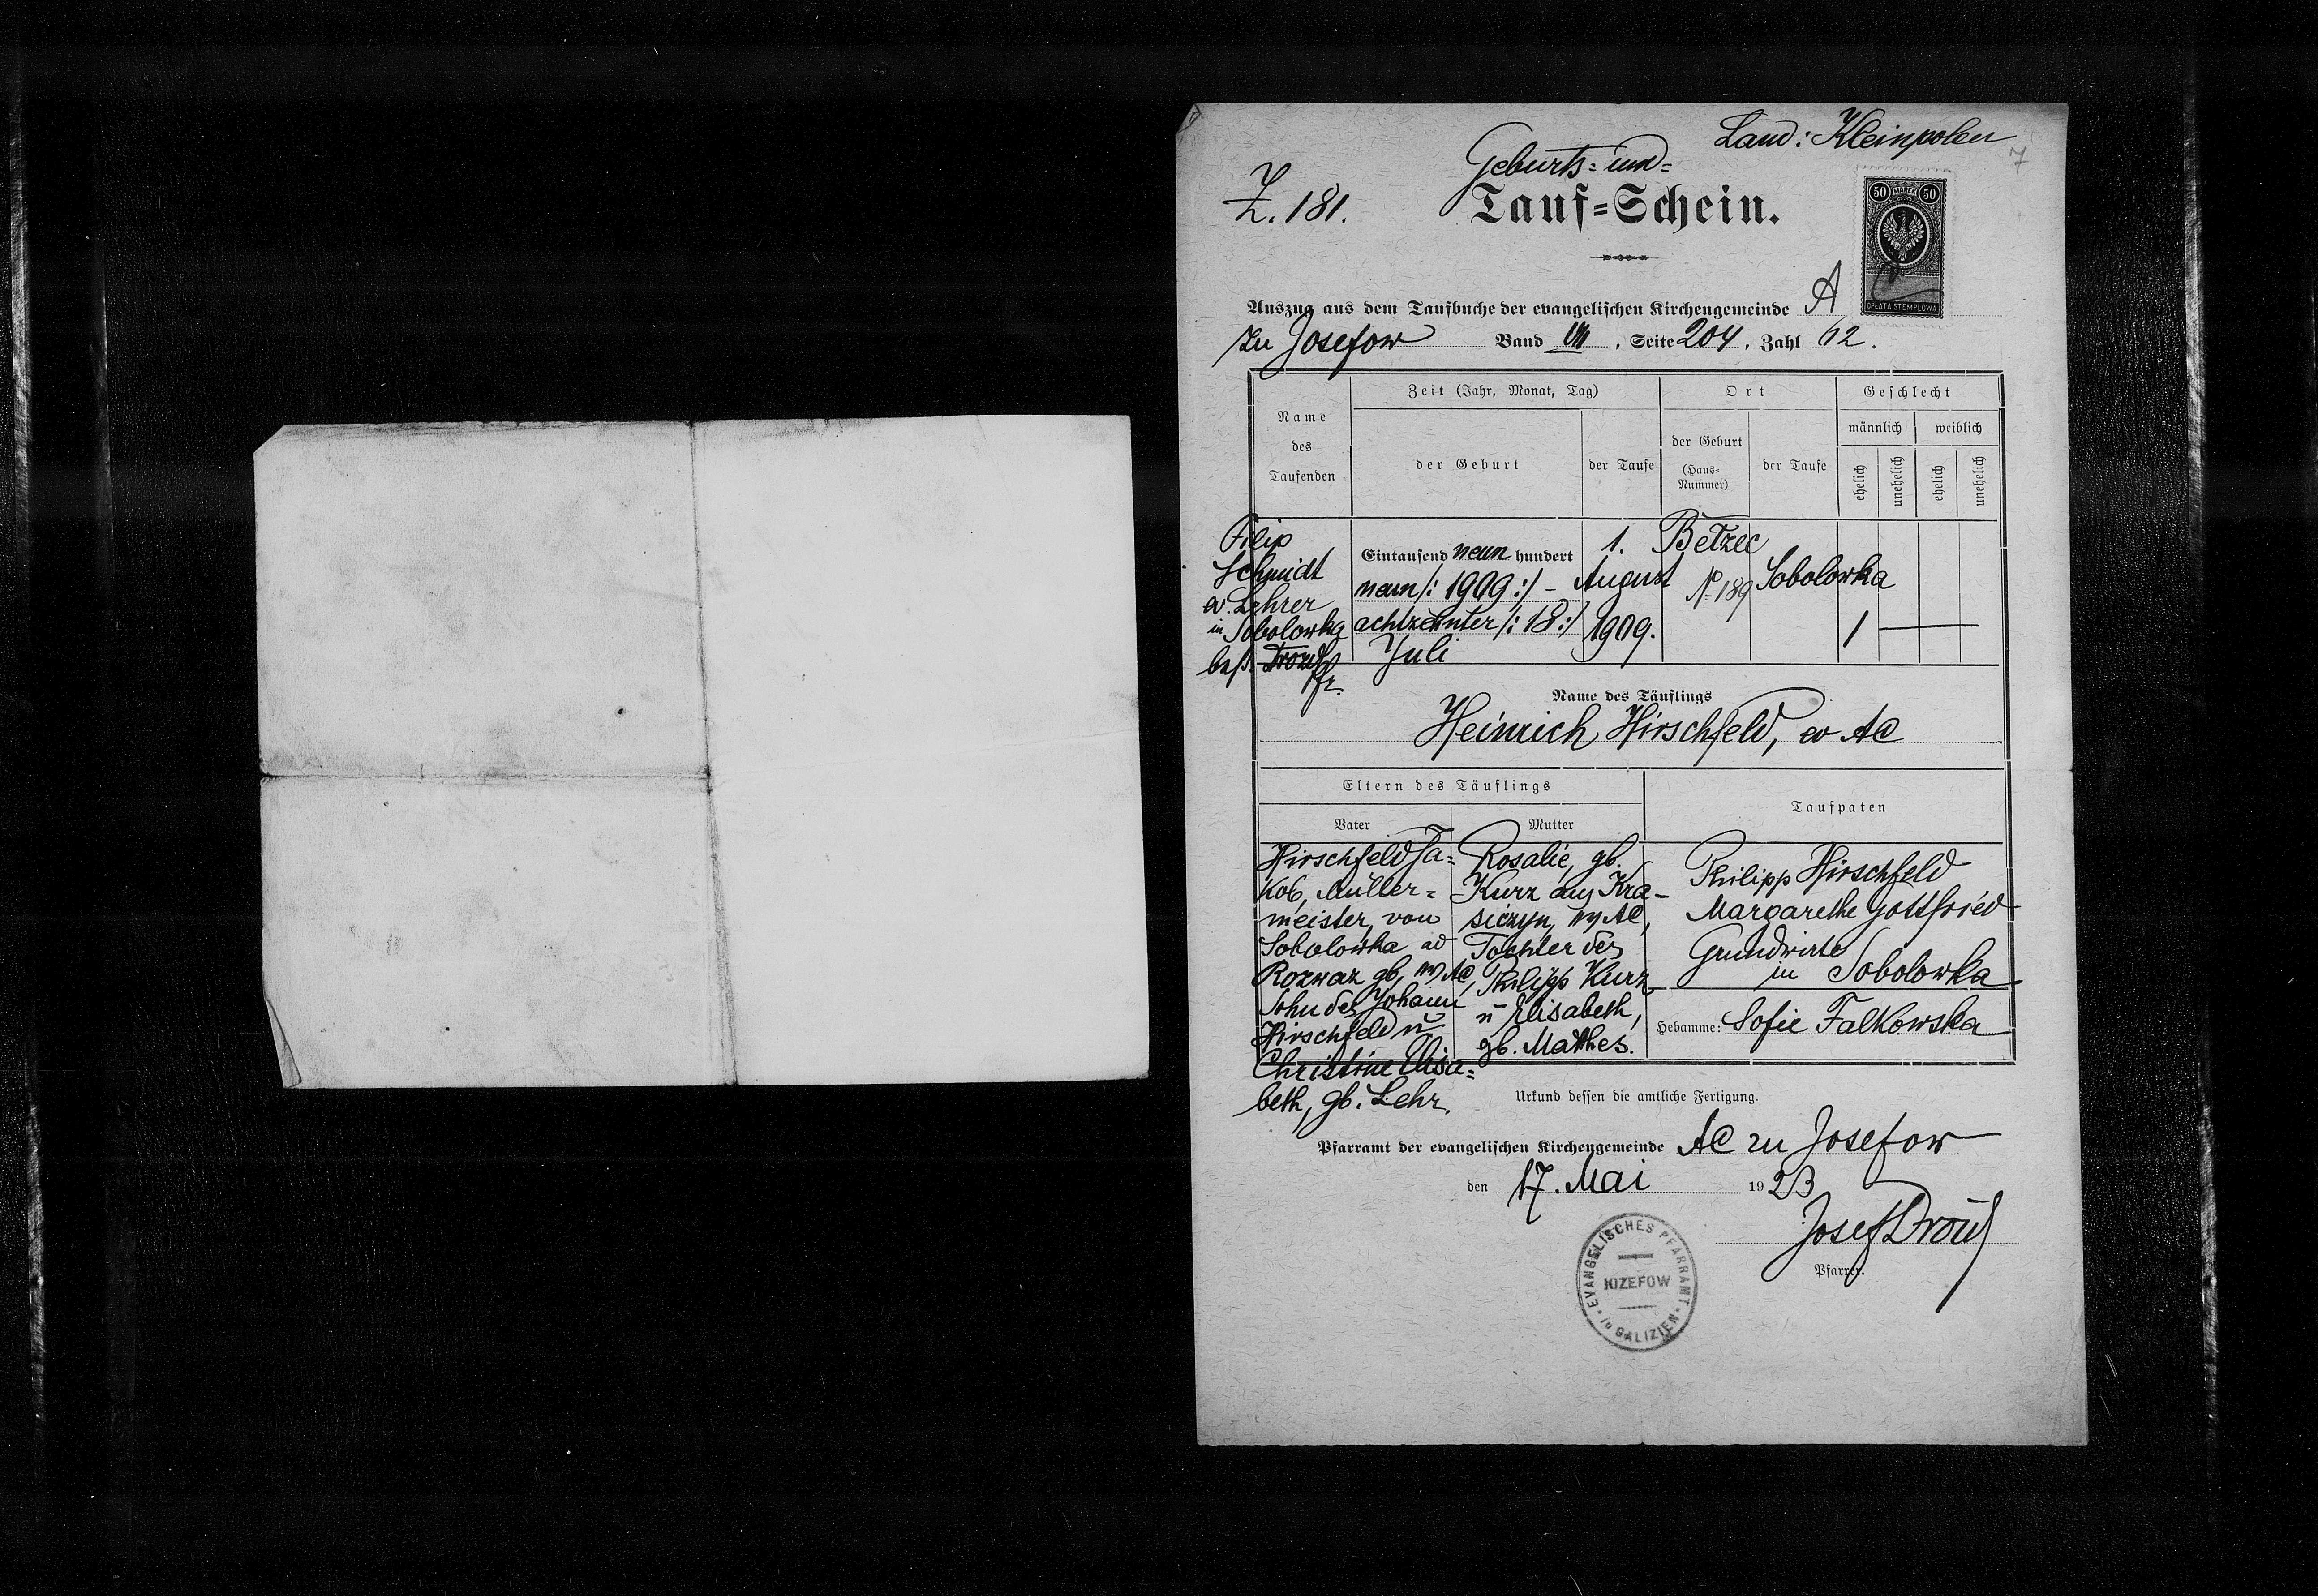 Land: Kleinpolen
7
Geburts- und-
Z. 181.
Tauf-Schein.
50 MAREK 50
OPŁATA STEMPLOWA
Auszug aus dem Taufbuche der evangelischen Kirchengemeinde A
zu Josefow Band VII, Seite 204, Zahl 62.
Name
des
Taufenden
Zeit (Jahr, Monat, Tag)
der Geburt
der Taufe
Ort
der Geburt
(Haus-
Nummer)
der Taufe
Geschlecht
männlich
weiblich
ehelich
unehelich
ehelich
unehelich
Filip
Schmidt
ev. Lehrer
in Sobolowka
Drozd
Pfr.
Eintausend neun hundert
neun /: 1909 :/ -
achtzehnter /: 18 :/
Juli
1.
August
1909.
Betzec
No 189
Sobolowka
1
Name des Täuflings
Heinrich Hirschfeld, ev AC
Eltern des Täuflings
Vater
Mutter
Taufpaten
Hirschfeld Ja-
kob, Müller-
meister, von
Sobolowka ad
Rozwaz gb, ev AC,
Sohn des Johann
Hirschfeld u
Christine Elisa-
beth, gb. Lehr.
Rosalie, gb.
Kurz aus Kra-
siczyn, ev AC,
Tochter des
Philipp Kurz
u Elisabeth,
gb. Mathes.
Philipp Hirschfeld
Margarethe Gottfried
Grundwirte
in Sobolowka
Hebamme: Sofie Falkowska
Urkund dessen die amtliche Fertigung.
Pfarramt der evangelischen Kirchengemeinde AC zu Josefow
den 17. Mai 1923
Josef Drozd
Pfarrer.
EVANGELISCHES PFARRAMT
JOZEFOW
in GALIZIEN